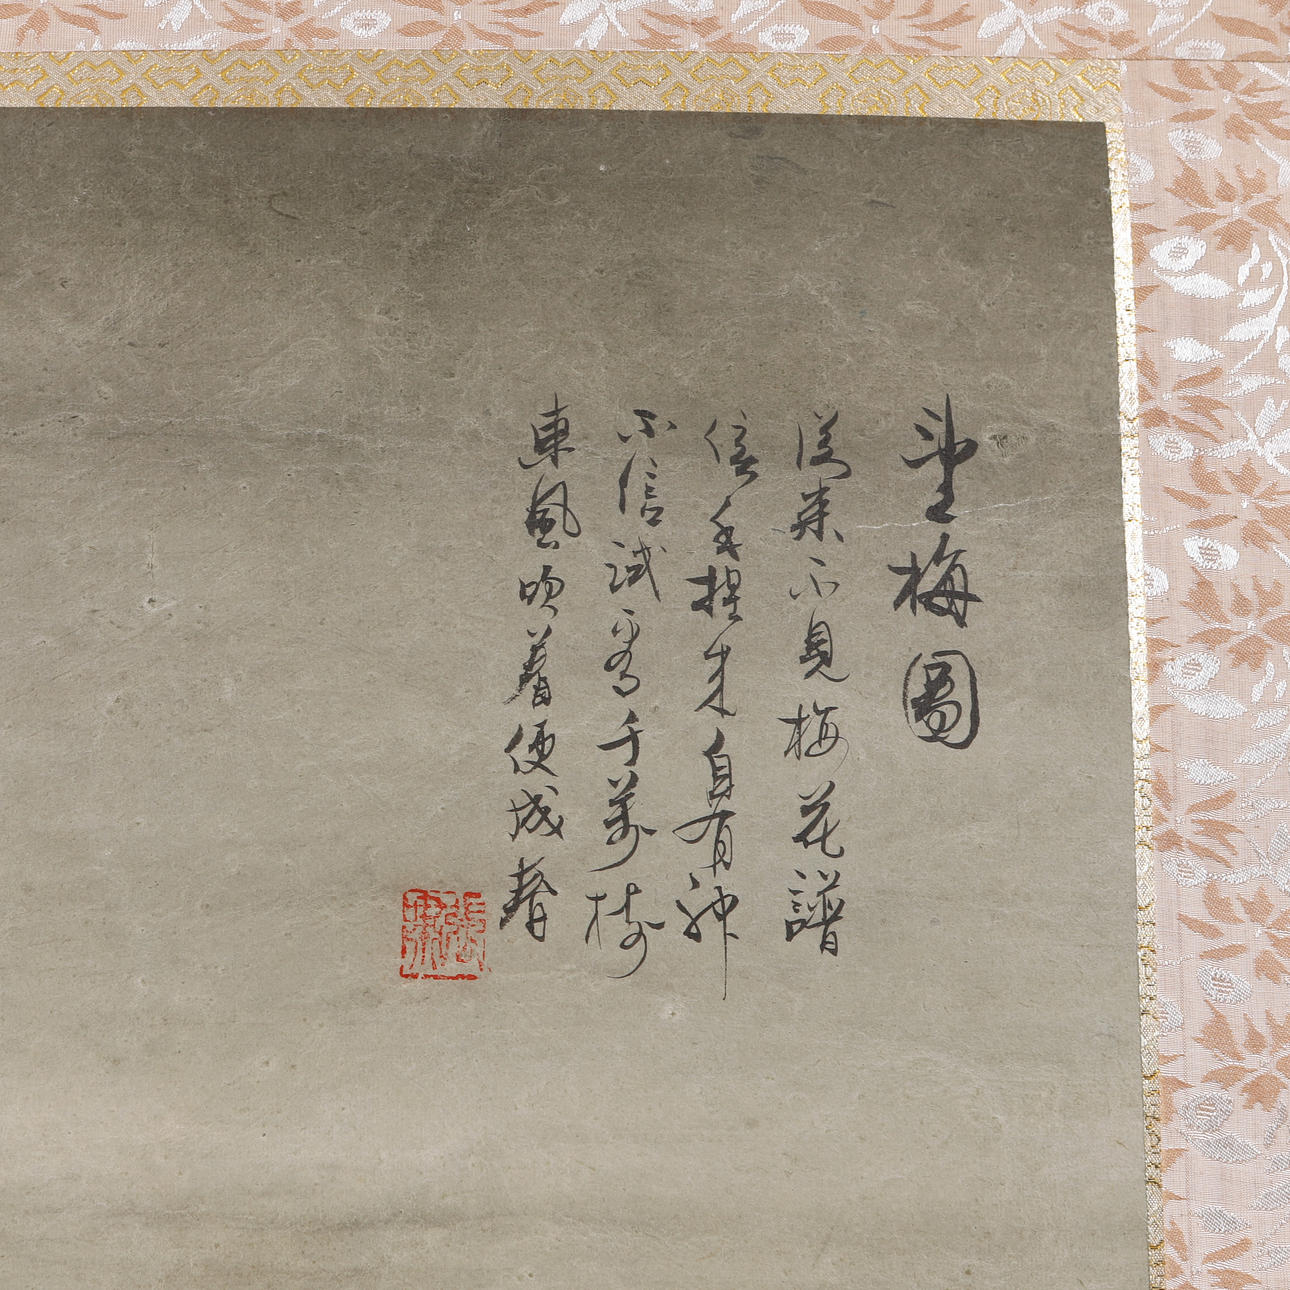 墨梅圖
從来不見梅花譜
信手捏来自有神
不信試看千萬樹
東風吹着便成春